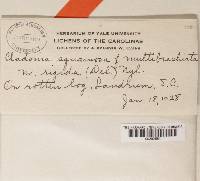 HERBARIUM OF YALE UNIVERSITY
LICHENS OF THE CAROLINAS
Cladonia squamosa f. multibrachiata
m. rigida (Del.) Nyl.
On rotten log, Landrum, S.C.
Jan 18, 1928